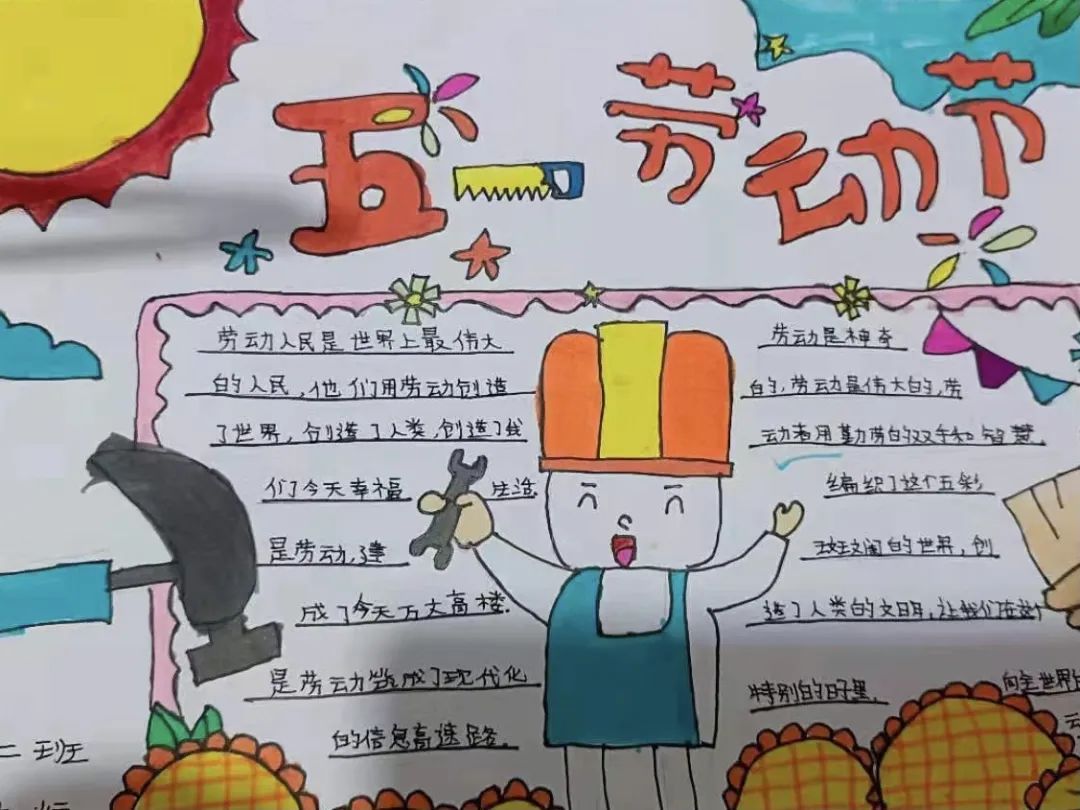 五一劳动节
劳动人民是世界上最伟大
的人民，他们用劳动创造
了世界，创造了人类，创造了我
们今天幸福生活.
是劳动，建
成了今天万丈高楼.
是劳动筑成了现代化
的信息高速路.
劳动是神奇
的，劳动是伟大的，劳
动者用勤劳的双手和智慧，
编织了这个五彩
斑斓的世界，创
造了人类的文明，让我们在这个
特别的日子里，
向全世界
二班